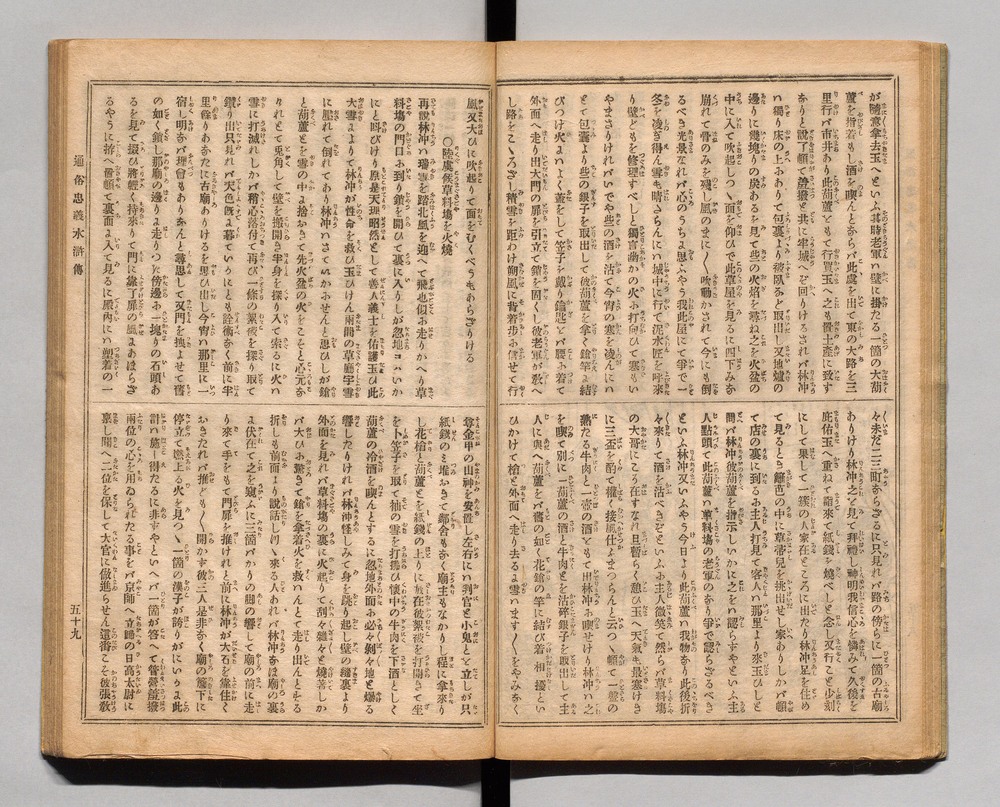 が隨意拿去玉へといふ其時老軍ハ壁に掛たる一箇の大葫
蘆を指着もし酒を喫んとならバ此處を出て東の大路を三
里行バ市有り此葫蘆をもて行買玉へ之も置土產に致す
なりと說了頓て差撥と共に牢城へぞ回りけるされバ林冲
ハ獨り床の上にありて包裹より被臥など取出し又地爐の
邊りに幾塊の炭あるを見て些の火焰を尋ね之を火盆の
中に入て吹起しつゝ面を仰ひで此草屋を見るに四下みな
崩れて骨のみを殘し風のまに〱吹動かされて今にも倒
るべき光景なれバ心のうちに思ふやう我此屋にて爭で一
冬を凌ぎ得ん雪も晴さらんにハ城中に行て泥水匠を呼來
り壁どもを修理すべしと獨言尚かの火に打向ひて寒もい
やまさりければいでや些の酒を沽て今宵の寒を凌んにハ
とて包裹より些の銀子を取出して彼葫蘆を拿く鎗竿に結
びつけ火よけによく蓋をして笠子を戴り鎗匙をバ腰に着て
外面へ走り出大門の扉を引立て鎖を固くし彼老軍が敎へ
し路をこゝろざし積雪を距わけ朔風に背着步に信せて行
々未だ二三町ならざるに只見れバ路の傍らに一箇の古廟
ありけり林冲之を見て拜禮し神明我信心を憐みて久後を
庇佑玉へ重ねて詣來て紙錢を燒べしと念し又行こと少刻
にして果して一簇の人家在ところに出たり林冲足を住め
て見るとき籬笆の中に草帚兒を挑出せし家ありしかバ頓
て店の裏に到るに主人打見て客人ハ那里より來玉ひしと
問バ林冲彼葫蘆を指示しいかに之をバ認らずやといふ主
人點頭て此葫蘆ハ草料場の老軍のなり爭で認らざるべき
といふ林冲又いふやう今日より此葫蘆ハ我物なり此後折
々來りて酒を沽べきぞといふに主人微笑て然らバ草料場
の大哥にこそ在すなれ且暫らく憩ひ玉へ天氣も最寒けき
に三盃を酌て權く接風仕るまつらんと云つゝ頓て一盤の
熟たる牛肉と一壺の酒とをもて出林冲に喫せけり林冲ハ之
を喫て別に一葫蘆の酒と牛肉とを沽碎銀子を取出して主
人に與へ葫蘆をバ舊の如く花鎗の竿に結び着相擾とい
ひかけて槍を外面へ走り去るに雪ハます〱をやみなく
風又大ひに吹起りて面をむくべうもあらざりける
〇陸虞候草料場を火燒
再說林冲ハ瑞雪を踏み風を迎へて飛也似に走りかへり草
料塲の門口に到り鎖を開ひて裏に入りしが忽地コハいか
にと叫びけり原是天理昭然として善人義士を佑護玉ひ此
大雪によりて林冲が性命を救ひ玉ひけん兩間の草廳宇雪
に壓れて倒れてあり林冲ハさていかにせんと思ひしが鎗
と葫蘆とを雪の中に捨おきて先火盆の火をこそと心元な
けれとて兎角して壁を搬開き半身を探り入て索るに火ハ
雪に打滅れしかバ稍心落付て再び一條の絮被を探り取て
鑽り出只見れバ天色旣に暮ていかにとも詮術なく前に半
里餘りあなたに古廟ありけるを思ひ出し今宵ハ那里に一
宿し明なバ理會もありなんと尋思して又門を拽よせて舊
の如く鎖し那廟の邊りに走りつゝ傍邊に一塊の石頭あ
るを見て掇び將輕く持來りて門に靠了扉の風にあほらざ
るやうに拵へ置頓て裏面に入て見るに殿內にハ塑着の一
尊金甲の山神を安置し左右にハ判官と小鬼とを立しが只
紙錢のミ堆おきて鄰舍もなく廟主もなかりし程に拿來り
し花槍と葫蘆とを紙錢の上に放在絮被を打開きて坐
を卜笠子を取て袖の雪を打拂ひ懷中の牛肉を下酒として
葫蘆の冷酒を喫んとするに忽地外面に必々剝々地と爆る
響したりければバ林冲怪しみて身を跳り起し壁の縫裏より
外面を見れバ草料塲の裏に火起りて刮々繼々と燒着しか
バ大ひに驚きて鎗を拿着火を救ハんとて走り出んとする
折しも前面より說話しツゝ來る人あれバ林冲なほ廟の裏
に伏在て之を窺ふに三箇バかりの脚の響して廟の前に走
り來て手をもて門扉を推けれど前に林冲が大石を靠住く
おきたれバ推ども〱開かず彼三人是非なく廟の簷下に
停立て燃上る火を見つゝ一箇の漢子が誇りがにいかに此
計バ施し得たるに非ずやといへバ一箇が答へて管營差撥
兩位の心を用ゐられたる事をバ京師へ立歸の日高太尉に
稟し聞へ二位を保して大官に做進らせん這番こそ彼張敎
通俗忠義水滸傳
五十九